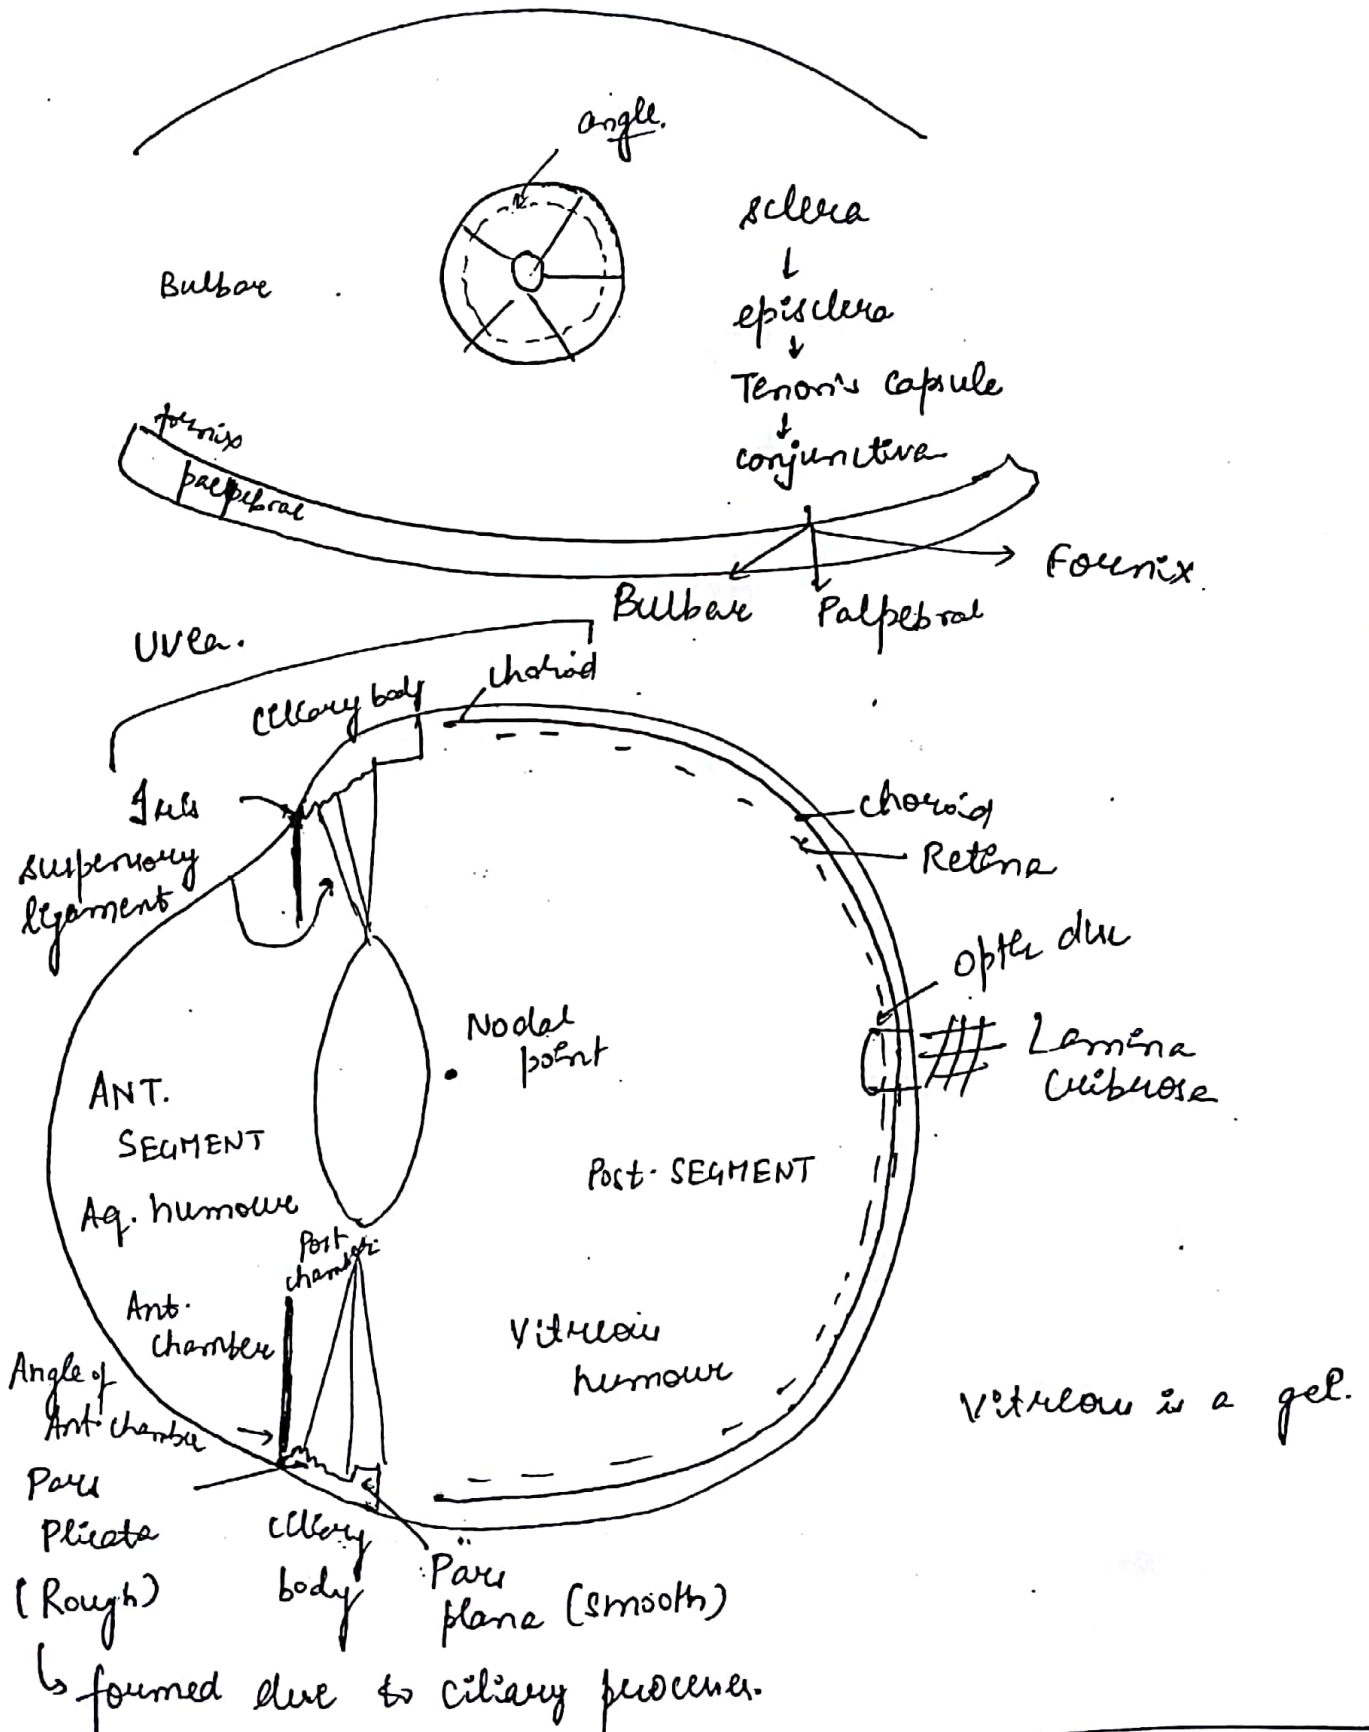 angle.
Bulbar
sclera
↓
episclera
↓
Tenon's capsule
↓
conjunctiva
fornix
palpebral
Fornix
Bulbar
Palpebral
Uvea.
choroid
ciliary body
Iris
suspensory
ligament
choroid
Retina
optic disc
Lamina
cribrosa
Nodal
point
ANT.
SEGMENT
Aq. humour
Post-SEGMENT
Post
chamber
Ant.
chamber
Vitreous
humour
Angle of
Ant. chamber
Vitreous is a gel.
Pars
Plicata
(Rough)
ciliary
body
Pars
plana (smooth)
↳ formed due to ciliary processes.